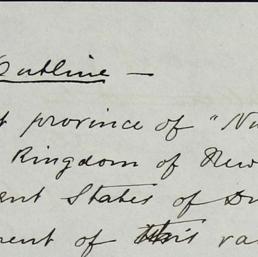 Outline —
province of "Nu
Kingdom of New
ent States of Du
ment of this va